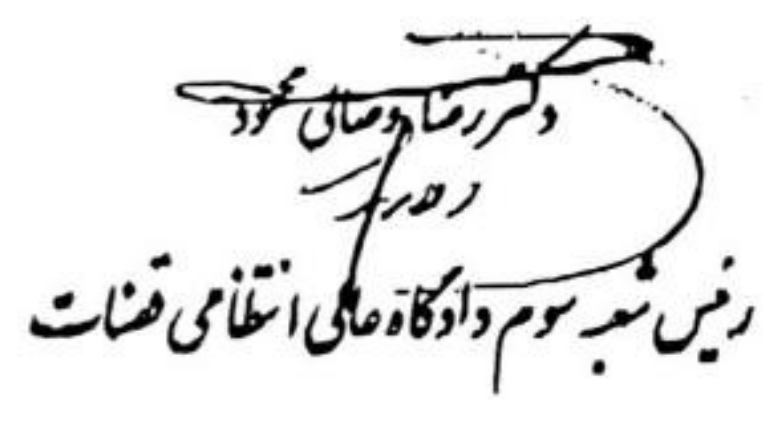 دکتر رضا وصالی محمود
رئیس شعبه سوم دادگاه عالی انتظامی قضات